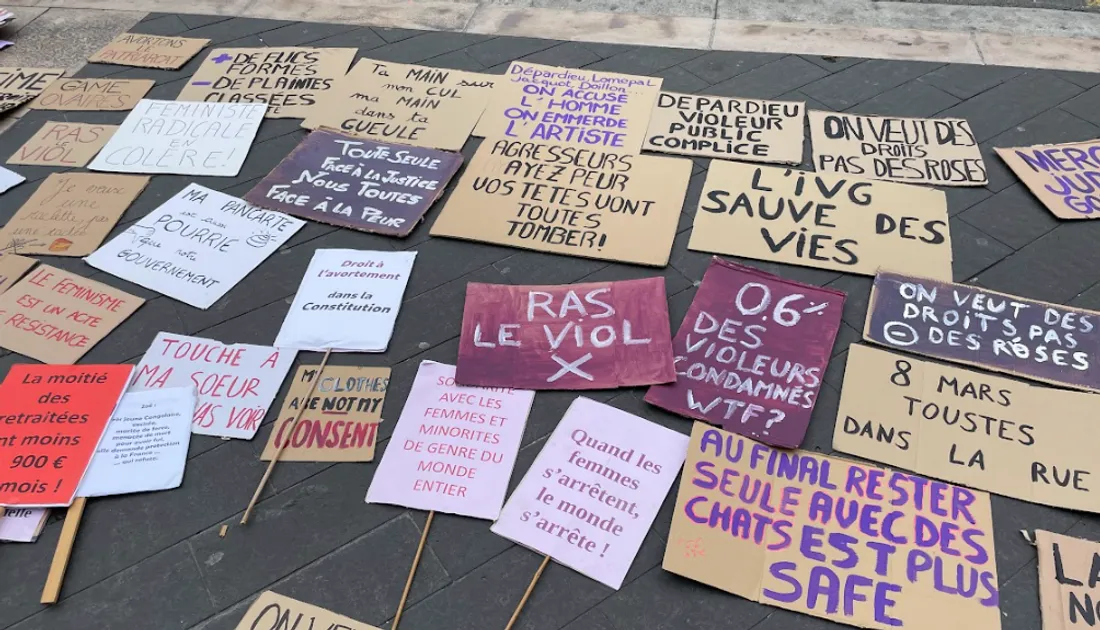 AVORTONS
LE
PATRIARCAT
GAME
OVAIRES
RAS LE
VIOL
+ DE FLICS
FORMÉS
- DE PLAINTES
CLASSÉES
Ta MAIN sur
mon CUL
ma MAIN
dans ta
GUEULE
Dépardieu, Lomepal
Jacquot, Doillon...
ON ACCUSE
L'HOMME
ON EMMERDE
L'ARTISTE
DEPARDIEU
VIOLEUR
PUBLIC
COMPLICE
ON VEUT DES
DROITS
PAS DES ROSES
FÉMINISTE
RADICALE
EN
COLÈRE!
TOUTE SEULE
FACE À LA JUSTICE
NOUS TOUTES
FACE À LA PEUR
AGRESSEURS
AYEZ PEUR
VOS TETES VONT
TOUTES
TOMBER!
L'IVG
SAUVE DES
VIES
Je veux
une
raclette pas
MA PANCARTE
est
POURRIE
comme
notre
GOUVERNEMENT
LE FEMINISME
EST UN ACTE
RESISTANCE
Droit à
l'avortement
dans la
Constitution
RAS
LE VIOL
X
0.6%
DES
VIOLEURS
CONDAMNÉS
WTF?
ON VEUT DES
DROITS PAS
DES ROSES
8 MARS
TOUSTES
DANS LA RUE
TOUCHE À
MA SOEUR
VAS VOIR
MY CLOTHES
ARE NOT MY
CONSENT
La moitié
des
retraitées
ont moins
900 €
mois !
SOLIDARITÉ
AVEC LES
FEMMES ET
MINORITES
DE GENRE DU
MONDE
ENTIER
Quand les
femmes
s'arrêtent,
le monde
s'arrête !
AU FINAL RESTER
SEULE AVEC DES
CHATS EST PLUS
SAFE
ON